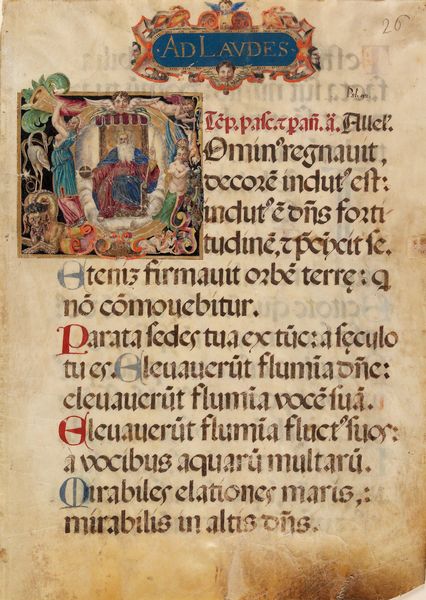 26
AD LAVDES
Tēp. pasc. t pań. ā. Allel'.
Omin⁹ regnauit,
decorē indut⁹ est:
indut⁹ ē dn̄s forti
tudinē, t p̄cīxit se.
Eteniꝫ firmauit orbē terrę: q
nō cōmovebitur.
Parata sedes tua ex tūc: a sęculo
tu es. Elevaverūt flumīa dn̄e:
eleuauerūt flumīa vocē suā.
Elevaverūt flumīa fluct⁹ suos:
a vocibus aquarū multarū.
Mirabiles elationes maris,:
mirabilis in altis dn̄s.